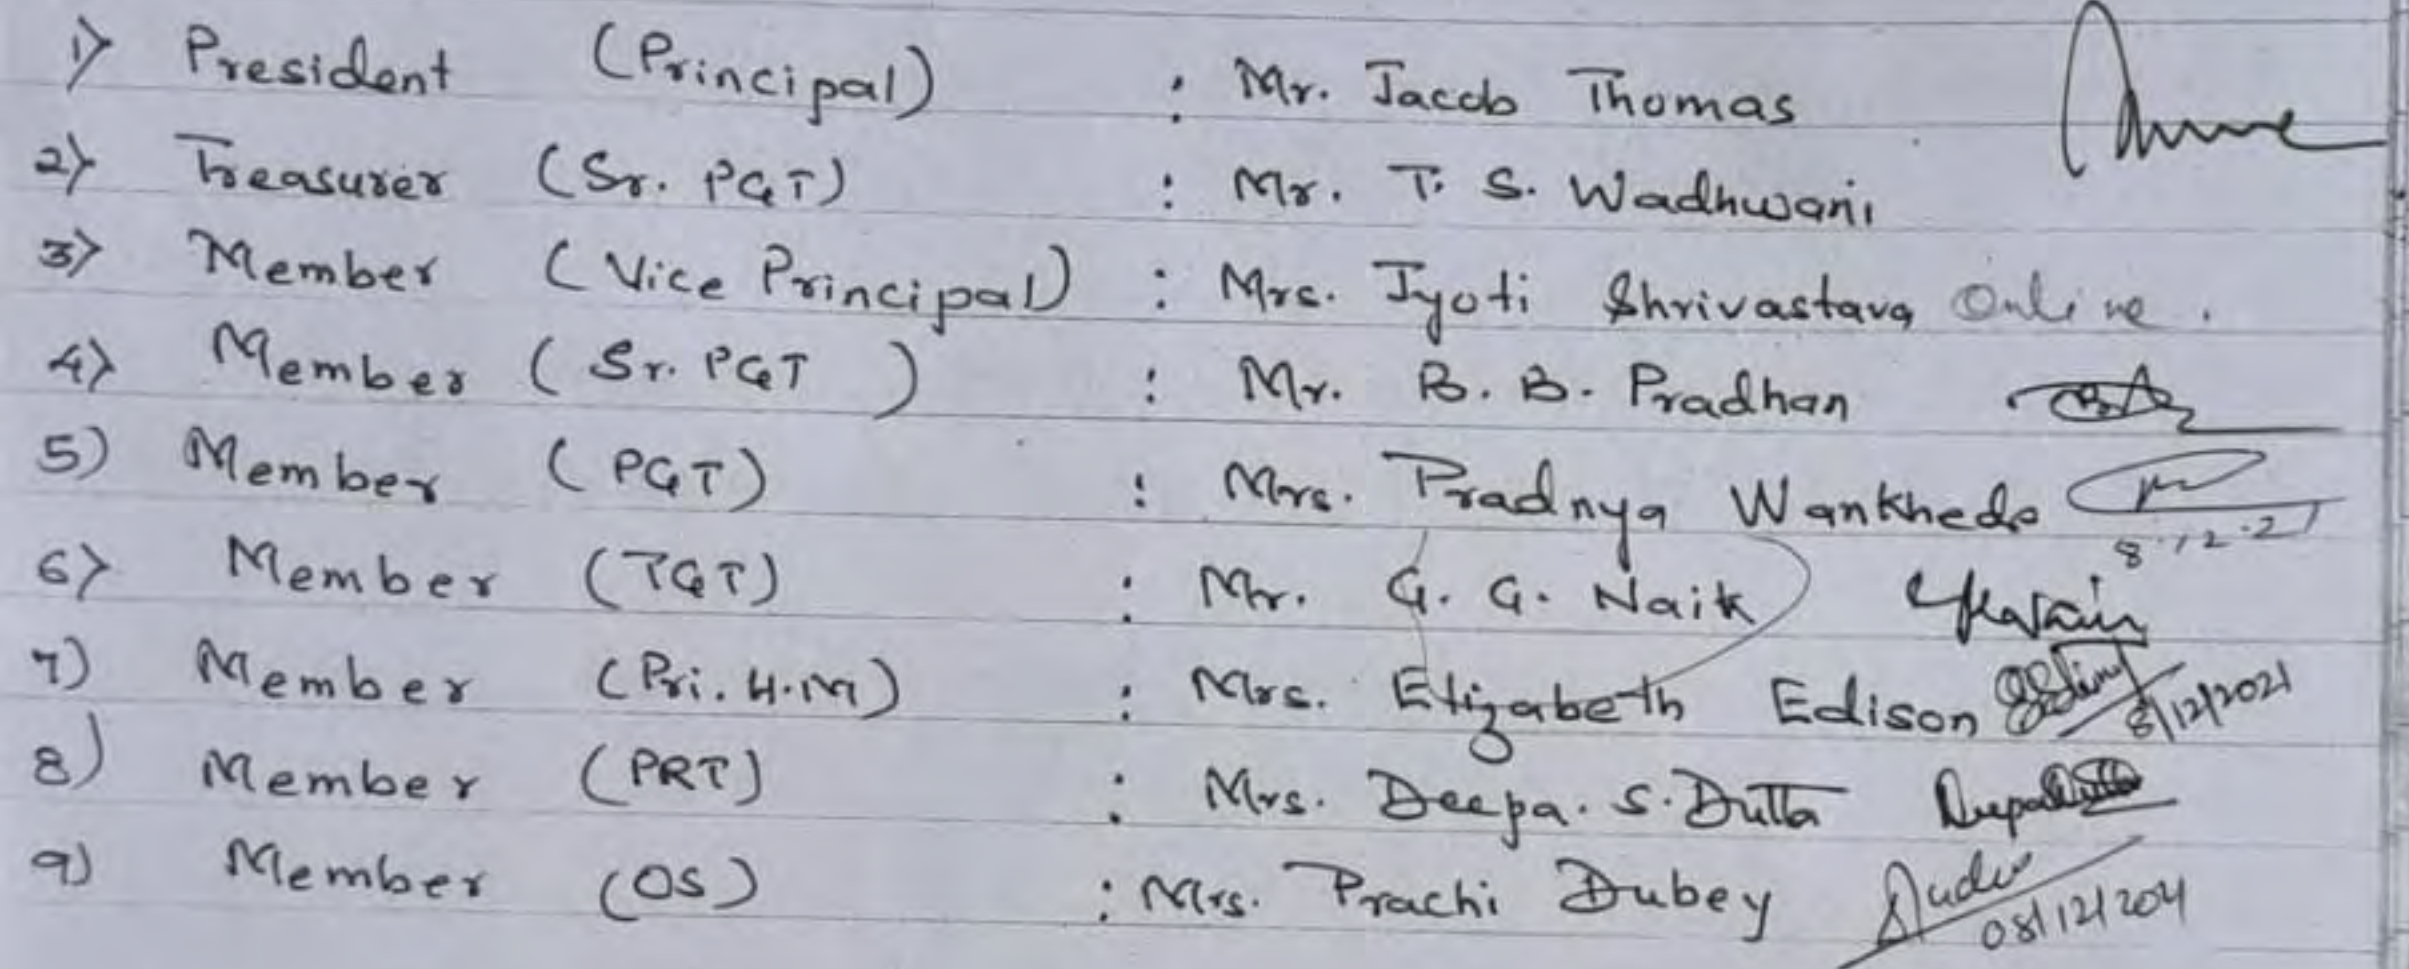 1) President (Principal) : Mr. Jacob Thomas
2) Treasurer (Sr. PGT) : Mr. T. S. Wadhwani
3) Member (Vice Principal) : Mrs. Jyoti Shrivastava Online.
4) Member (Sr. PGT) : Mr. B. B. Pradhan
5) Member (PGT) : Mrs. Pradnya Wankhede
8.12.21
6) Member (TGT) : Mr. G. G. Naik
7) Member (Pri. H.M) : Mrs. Elizabeth Edison
8/12/2021
8) Member (PRT) : Mrs. Deepa. S. Dutta
9) Member (OS) : Mrs. Prachi Dubey